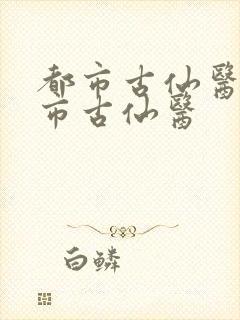 都市古仙醫
市古仙醫
白鱗